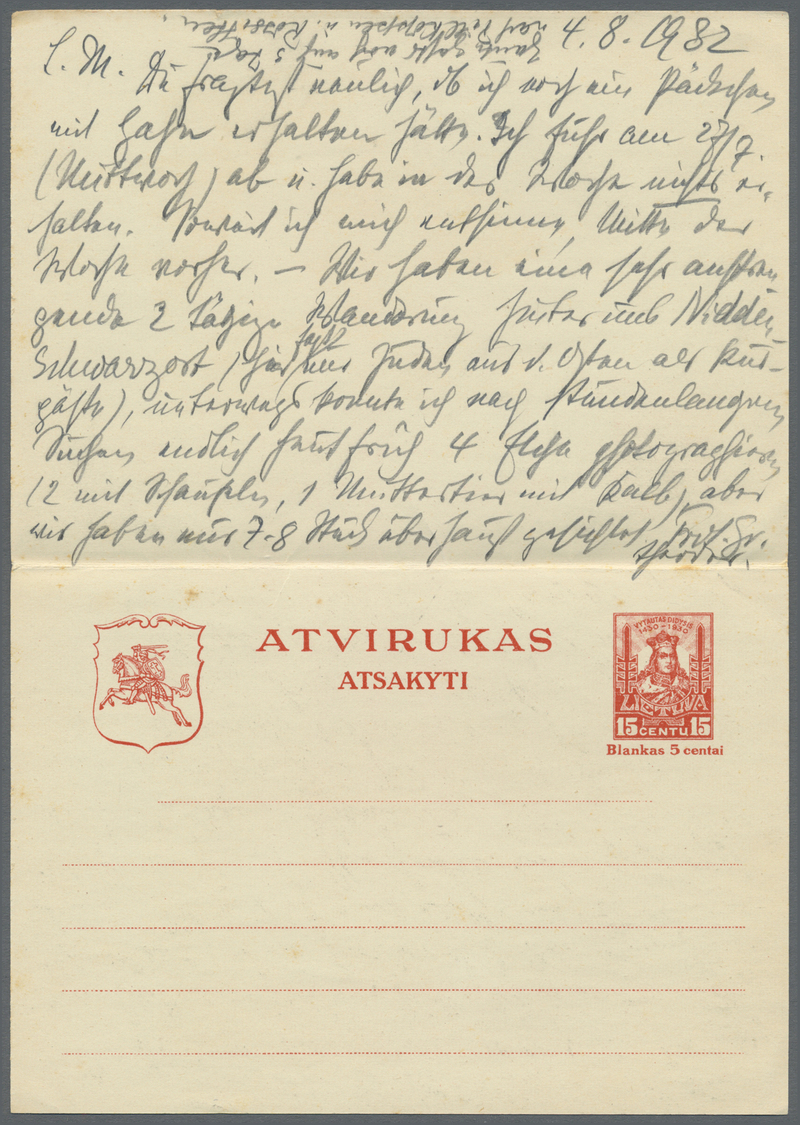 4.8.1932
L. M. Du fragtest neulich, ob ich noch ein Päckchen
mit Hahn erhalten hätte. Ich fuhr am 27/7.
(Mittwoch) ab u. habe in der Woche nichts er-
halten. Soweit ich mich entsinne, Mitte der
Woche vorher. – Wir haben eine sehr anstren
gende 2 tägige Wanderung hinter uns Nidden-
Schwarzort (hier fast nur Juden aus d. Osten als Kur-
gäste), unterwegs konnte ich nach stundenlangem
Suchen endlich heut früh 4 Elche photographieren
(2 mit Schaufeln, 1 Muttertier mit Kalb), aber
wir haben nur 7-8 Stück überhaupt gesichtet Frdl. Gr.
Theodor.
Heute Fahrt noch auf 3 Tage
nach Pillkoppen u. Rossitten.
ATVIRUKAS
ATSAKYTI
VYTAUTAS DIDYSIS
1430-1930
LIETUVA
15 CENTŲ 15
Blankas 5 centai